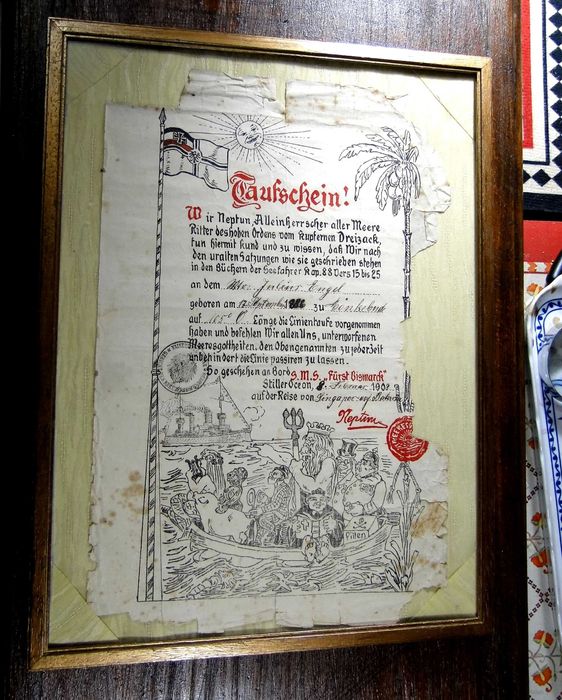 Taufschein!
Wir Neptun Alleinherrscher aller Meere
Ritter des hohen Ordens vom kupfernen Dreizack,
tun hiermit kund und zu wissen, daß Wir nach
den uralten Satzungen wie sie geschrieben stehen
in den Büchern der Seefahrer Kap. 88 Vers 15 bis 25
an dem Julius Engel
geboren am September zu
auf 105° O Länge die Linientaufe vorgenommen
haben und befehlen Wir allen Uns, unterworfenen
Meeresgottheiten, den Obengenannten zu jederZeit
unbehindert die Linie passiren zu lassen.
So geschehen an Bord S.M.S. „Fürst Bismarck"
Stiller Ocean, Februar 1908
auf der Reise von Singapore
Neptun
Pillen